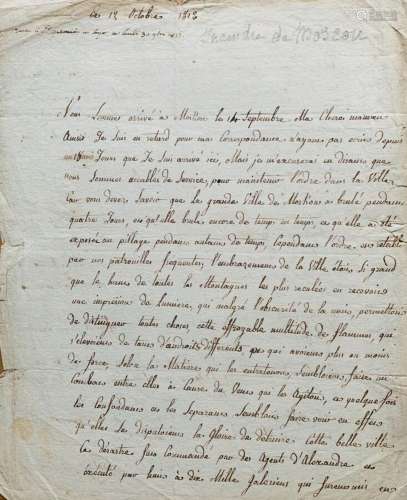 Ce 12 Octobre 1812
Incendie de Moscou
Nous Sommes arrivé à Moscou le 14 Septembre Ma Chere maman
Aussi Je Suis en retard pour ma Correspondance n'ayant pas écris depuis
Jours que Je Suis arrivé ici, Mais je m'excuserai en disant que
nous Sommes accablés de Service, pour maintenir l'ordre dans la Ville,
Car vous devez Savoir que la grande Ville de Moskou à brulé pendant
quatre Jours, et qu'elle brule encore de temps en temps, et qu'elle a été
exposée au pillage pendant autant de temps, Cependant l'ordre est rétabli
par nos patrouilles frequentes, l'embrasement de la Ville étais Si grand
que le de toutes les Montagnes les plus reculées en recevais
une impression de lumière, qui malgré l'obscurité de la nuit, permettais
de distinguer toutes choses, cette effroyable multitude de flammes, qui
s'élevoient de tant d'endroits différents, et qui avoient plus ou moins
de force, Selon la Matière qui les entretenois, Sembloient faire un
Combat entre elles à Cause du Vent qui les Agitois, et quelque fois
les Confondant et les Separant Semblois faire voir en effet
qu'elles Se disputoient la Gloire de détruire Cette belle ville
Ce désastre fut Commandé par des Agents d'Alexandre et
exécuté par huit à dix Mille Galeriens qui furent mis en